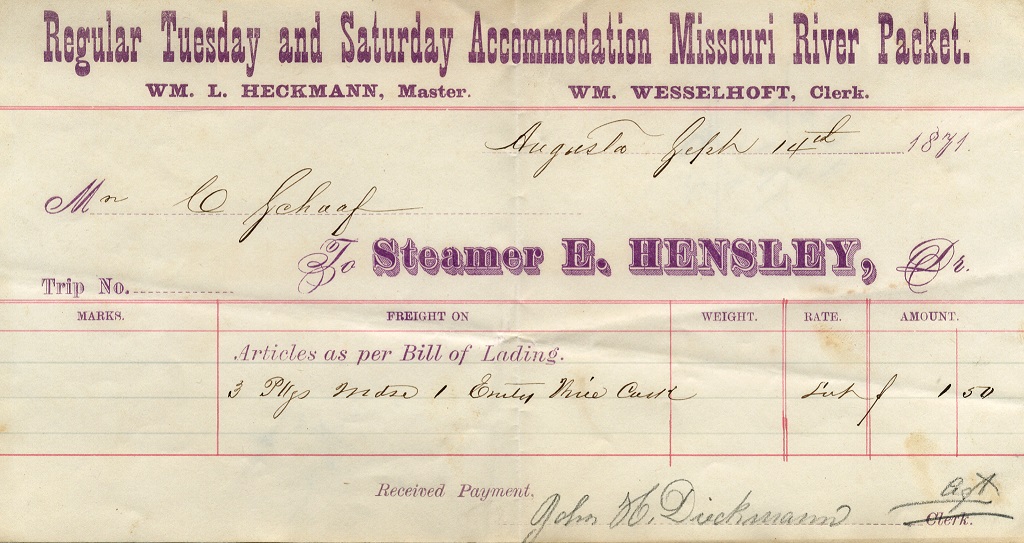 Regular Tuesday and Saturday Accommodation Missouri River Packet.
WM. L. HECKMANN, Master. WM. WESSELHOFT, Clerk.
Augusta Sept 14th 1871.
Mr C Schaaf
To Steamer E. HENSLEY, Dr.
Trip No.
MARKS. FREIGHT ON WEIGHT. RATE. AMOUNT.
Articles as per Bill of Lading.
3 Pkgs Mdse 1 Emty Cask 1 50
Received Payment,
John H. Dieckmann Agt
Clerk.